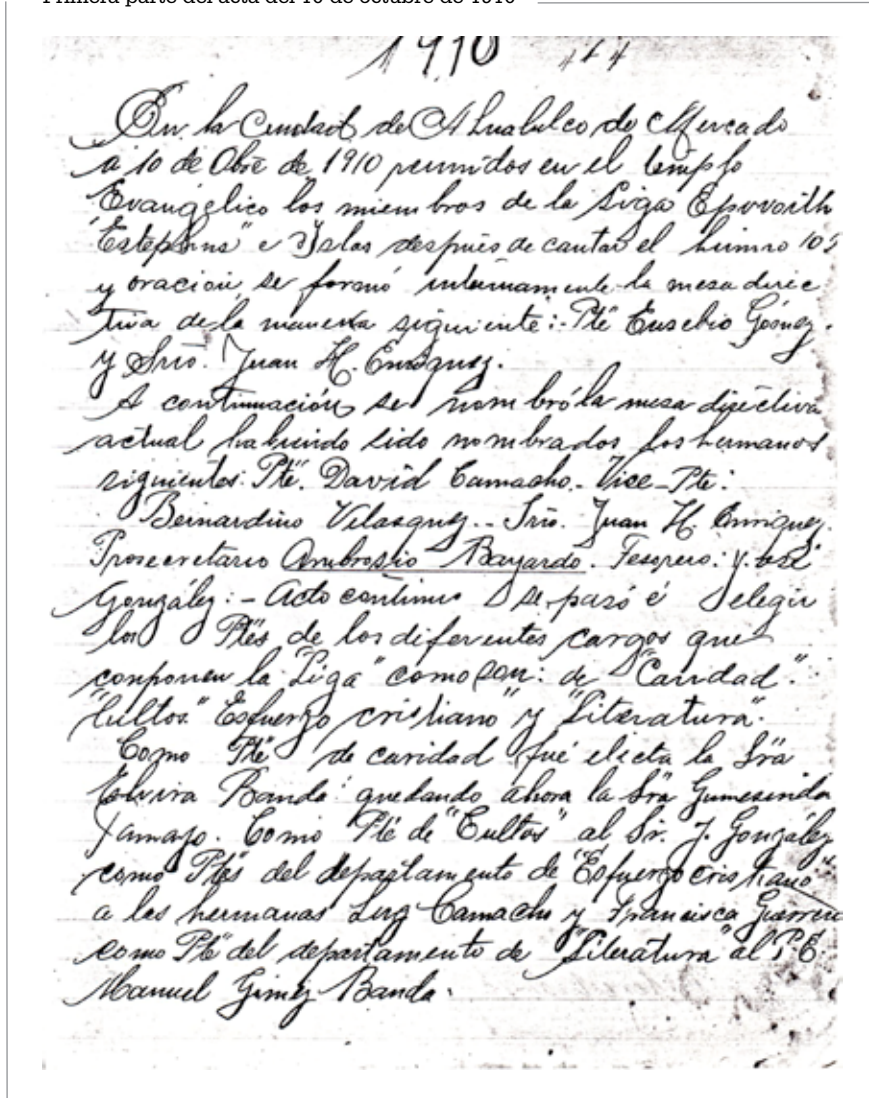 Primera parte del acta del 10 de octubre de 1910
1910
En la Ciudad de Ahualulco de Mercado
a 10 de Obre de 1910 reunidos en el templo
Evangélico los miembros de la Liga Epworth
"Estephns" e Islas después de cantar el himno 105
y oración, se formó interinamente la mesa direc
tiva de la manera siguiente:- Pte Eusebio Gómez.
y Srio. Juan H. Enriquez.
A continuación se nombró la mesa directiva
actual habiendo sido nombrados los hermanos
siguientes: Pte. David Camacho.- Vice-Pte:
Bernardino Velasquez.- Srio. Juan H. Enriquez.
Prosecretario Ambrosio Bayardo. Tesorero: y. José
González:- Acto continuo se pasó é elegir
los Ptes de los diferentes cargos que
conponen la "Liga" como son: de "Caridad".
"Cultos" "Esfuerzo cristiano" y "Literatura".
Como Pte de caridad fué electa la Sra
Elvira Banda: quedando ahora la Sra Gumesinda
Tamayo. Como Pte de "Cultos" al Sr. J. González
como Ptes del departamento de "Esfuerzo cristiano"
a las hermanas Luz Camacho y Francisca Guerrero
como Pte del departamento de "Literatura" al P.E.
Manuel Gimez Banda.